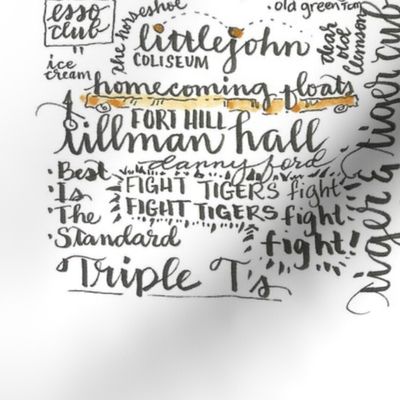 esso
club
ice
cream
the horseshoe
old green tom
littlejohn
COLISEUM
dear
old
Clemson
homecoming floats
FORT HILL
tillman hall
danny ford
• Best
• Is
• The
• Standard
FIGHT TIGERS fight
FIGHT TIGERS fight
fight!
Triple T's
tiger & tiger cub